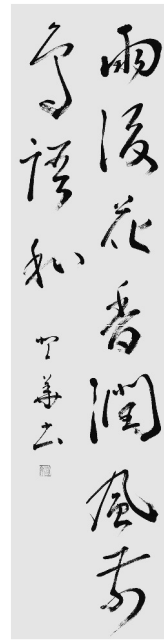 雨後花香潤風前
鳥語和
華書